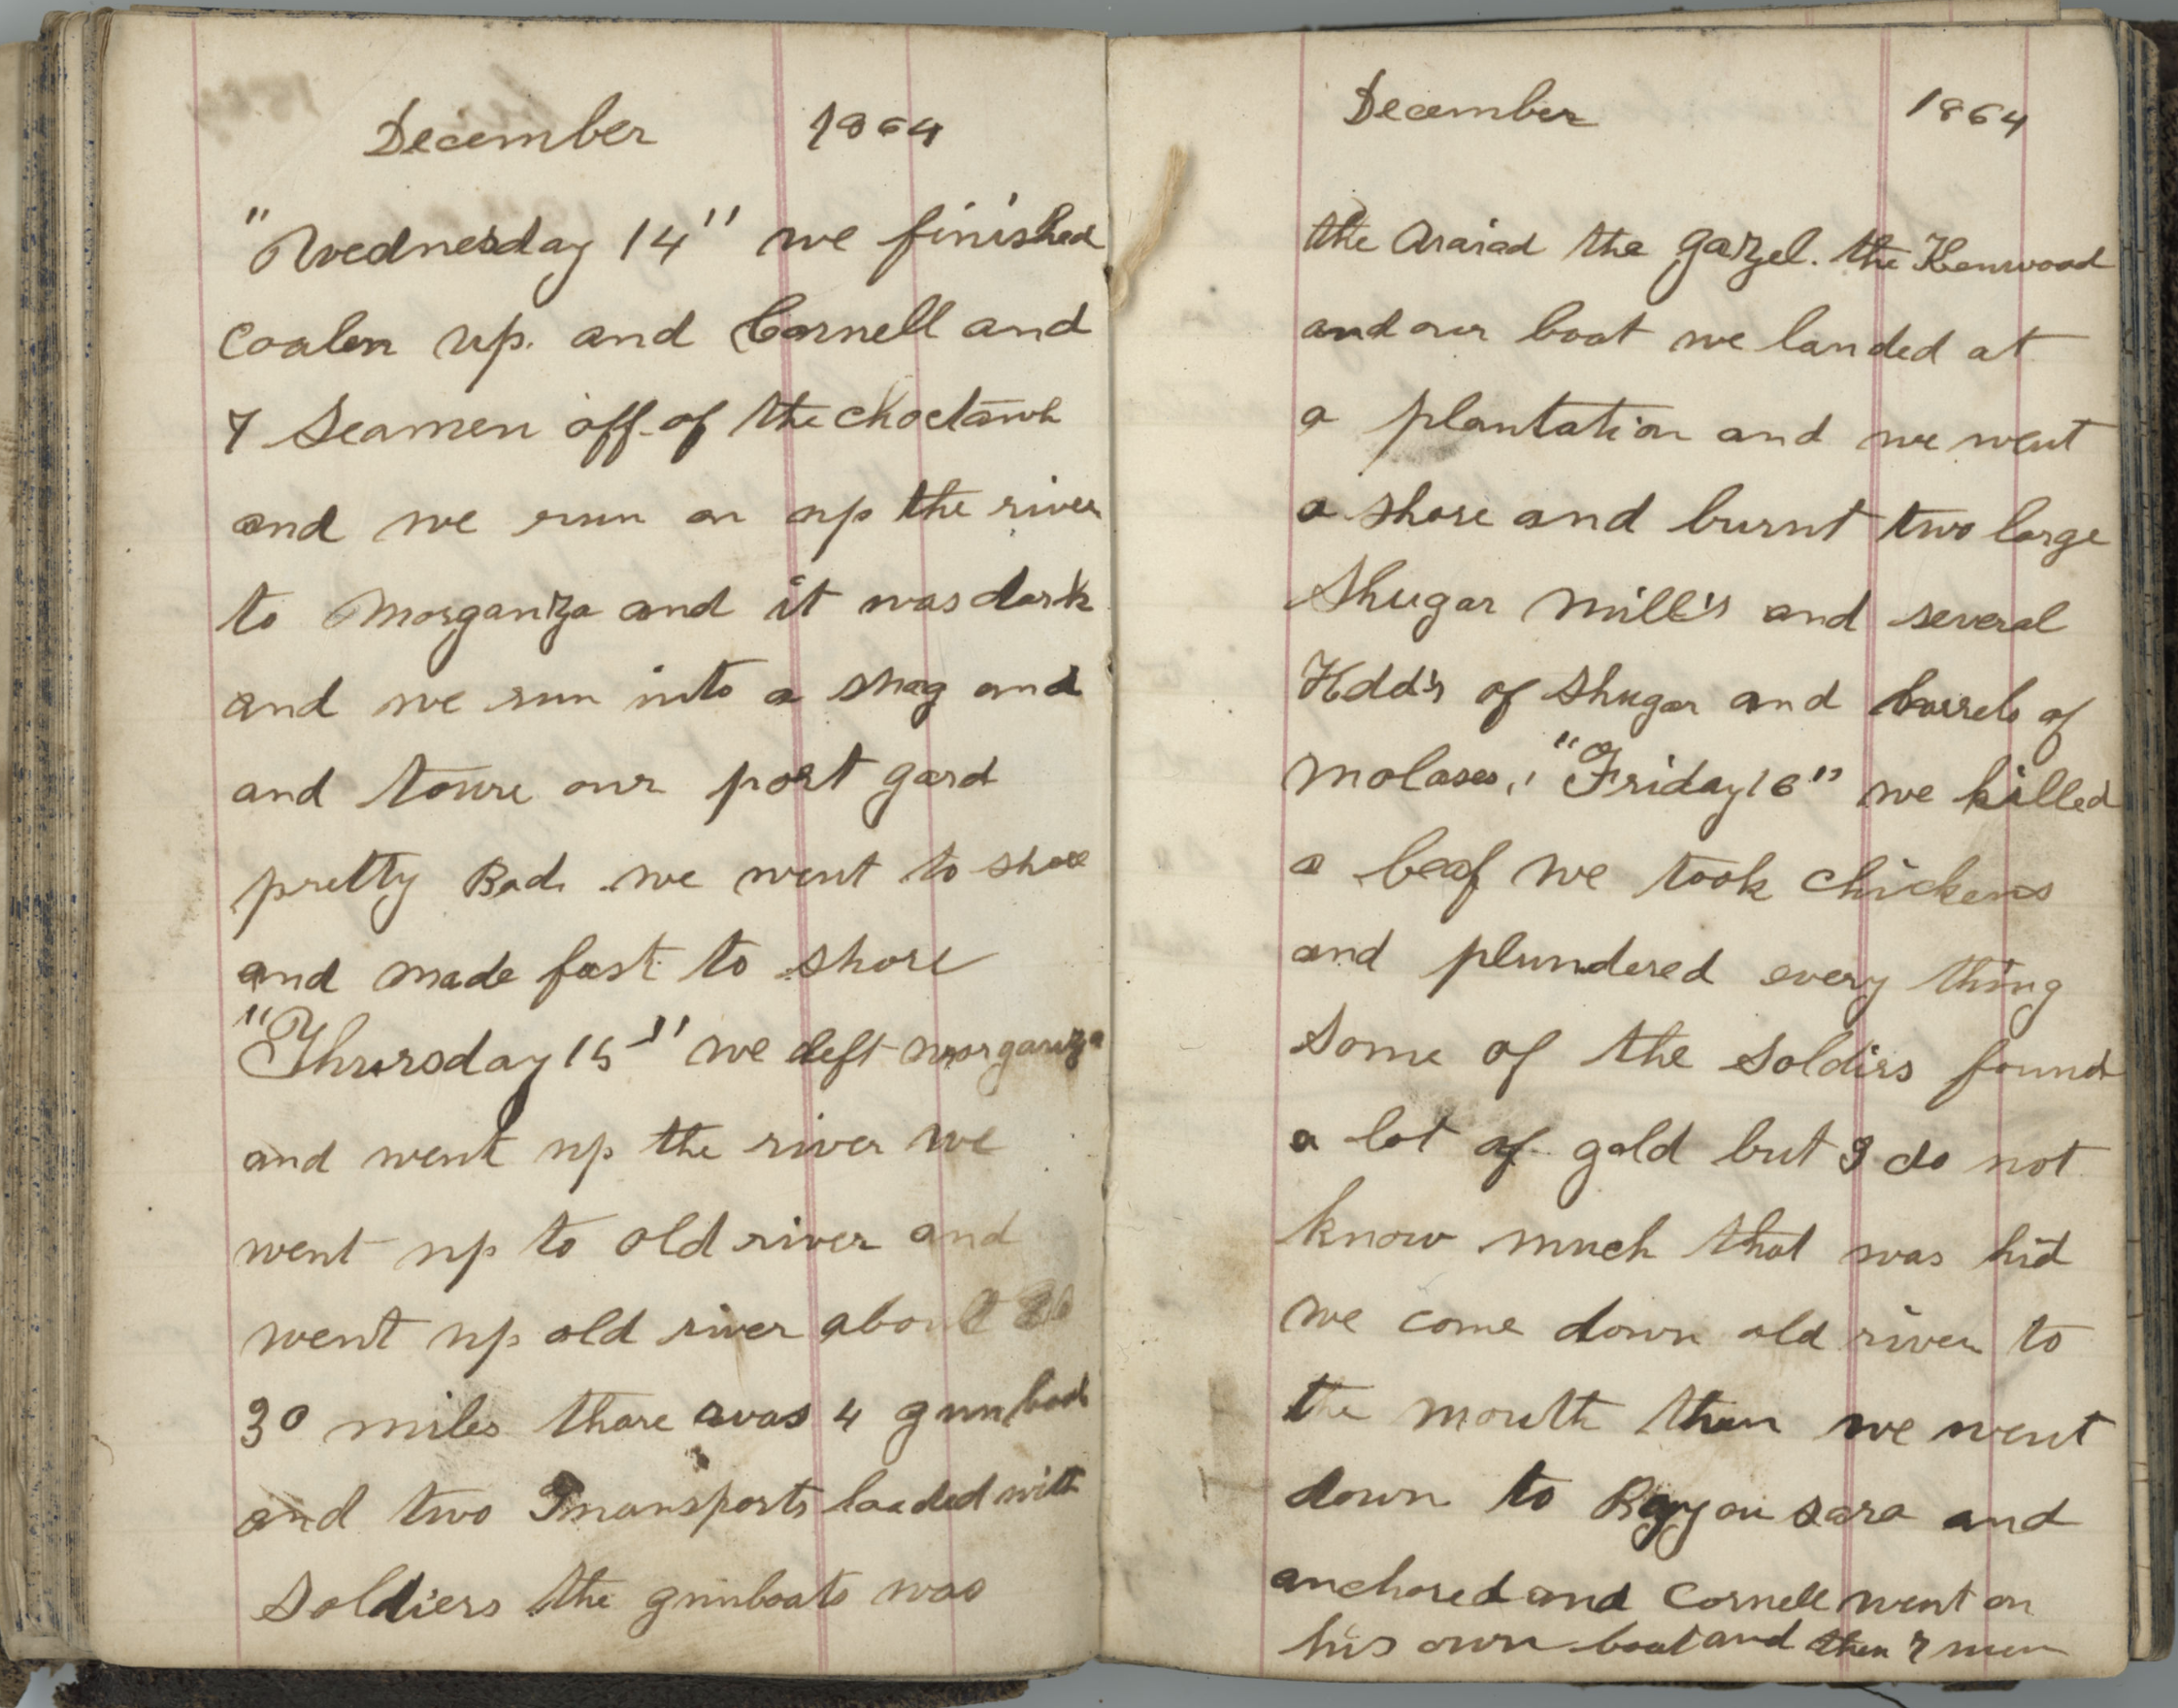 December 1864
"Wednesday 14" we finished
coalen up. and Cornell and
7 Seamen off of the choctawh
and we run on up the river
to Morganza and it was dark
and we run into a snag and
and toure our port gard
pretty Bad. we went to shore
and made fast to shore
"Thursday 15" we left morganza
and went up the river we
went up to old river and
went up old river about
30 miles thare was 4 gunboats
and two Transports loaded with
soldiers the gunboats was
December 1864
the Ararad the gazel. the Kenwood
and our boat we landed at
a plantation and we went
a shore and burnt two large
Shugar Mill's and several
Hdd's of Shugar and barrels of
Molases, "Friday 16" we killed
a beaf we took chickens
and plundered every thing
some of the soldirs found
a lot of gold but I do not
know much that was hid
we come down old river to
the mouth then we went
down to Bayyou sara and
anchored and Cornell went on
his own boat and then 7 men